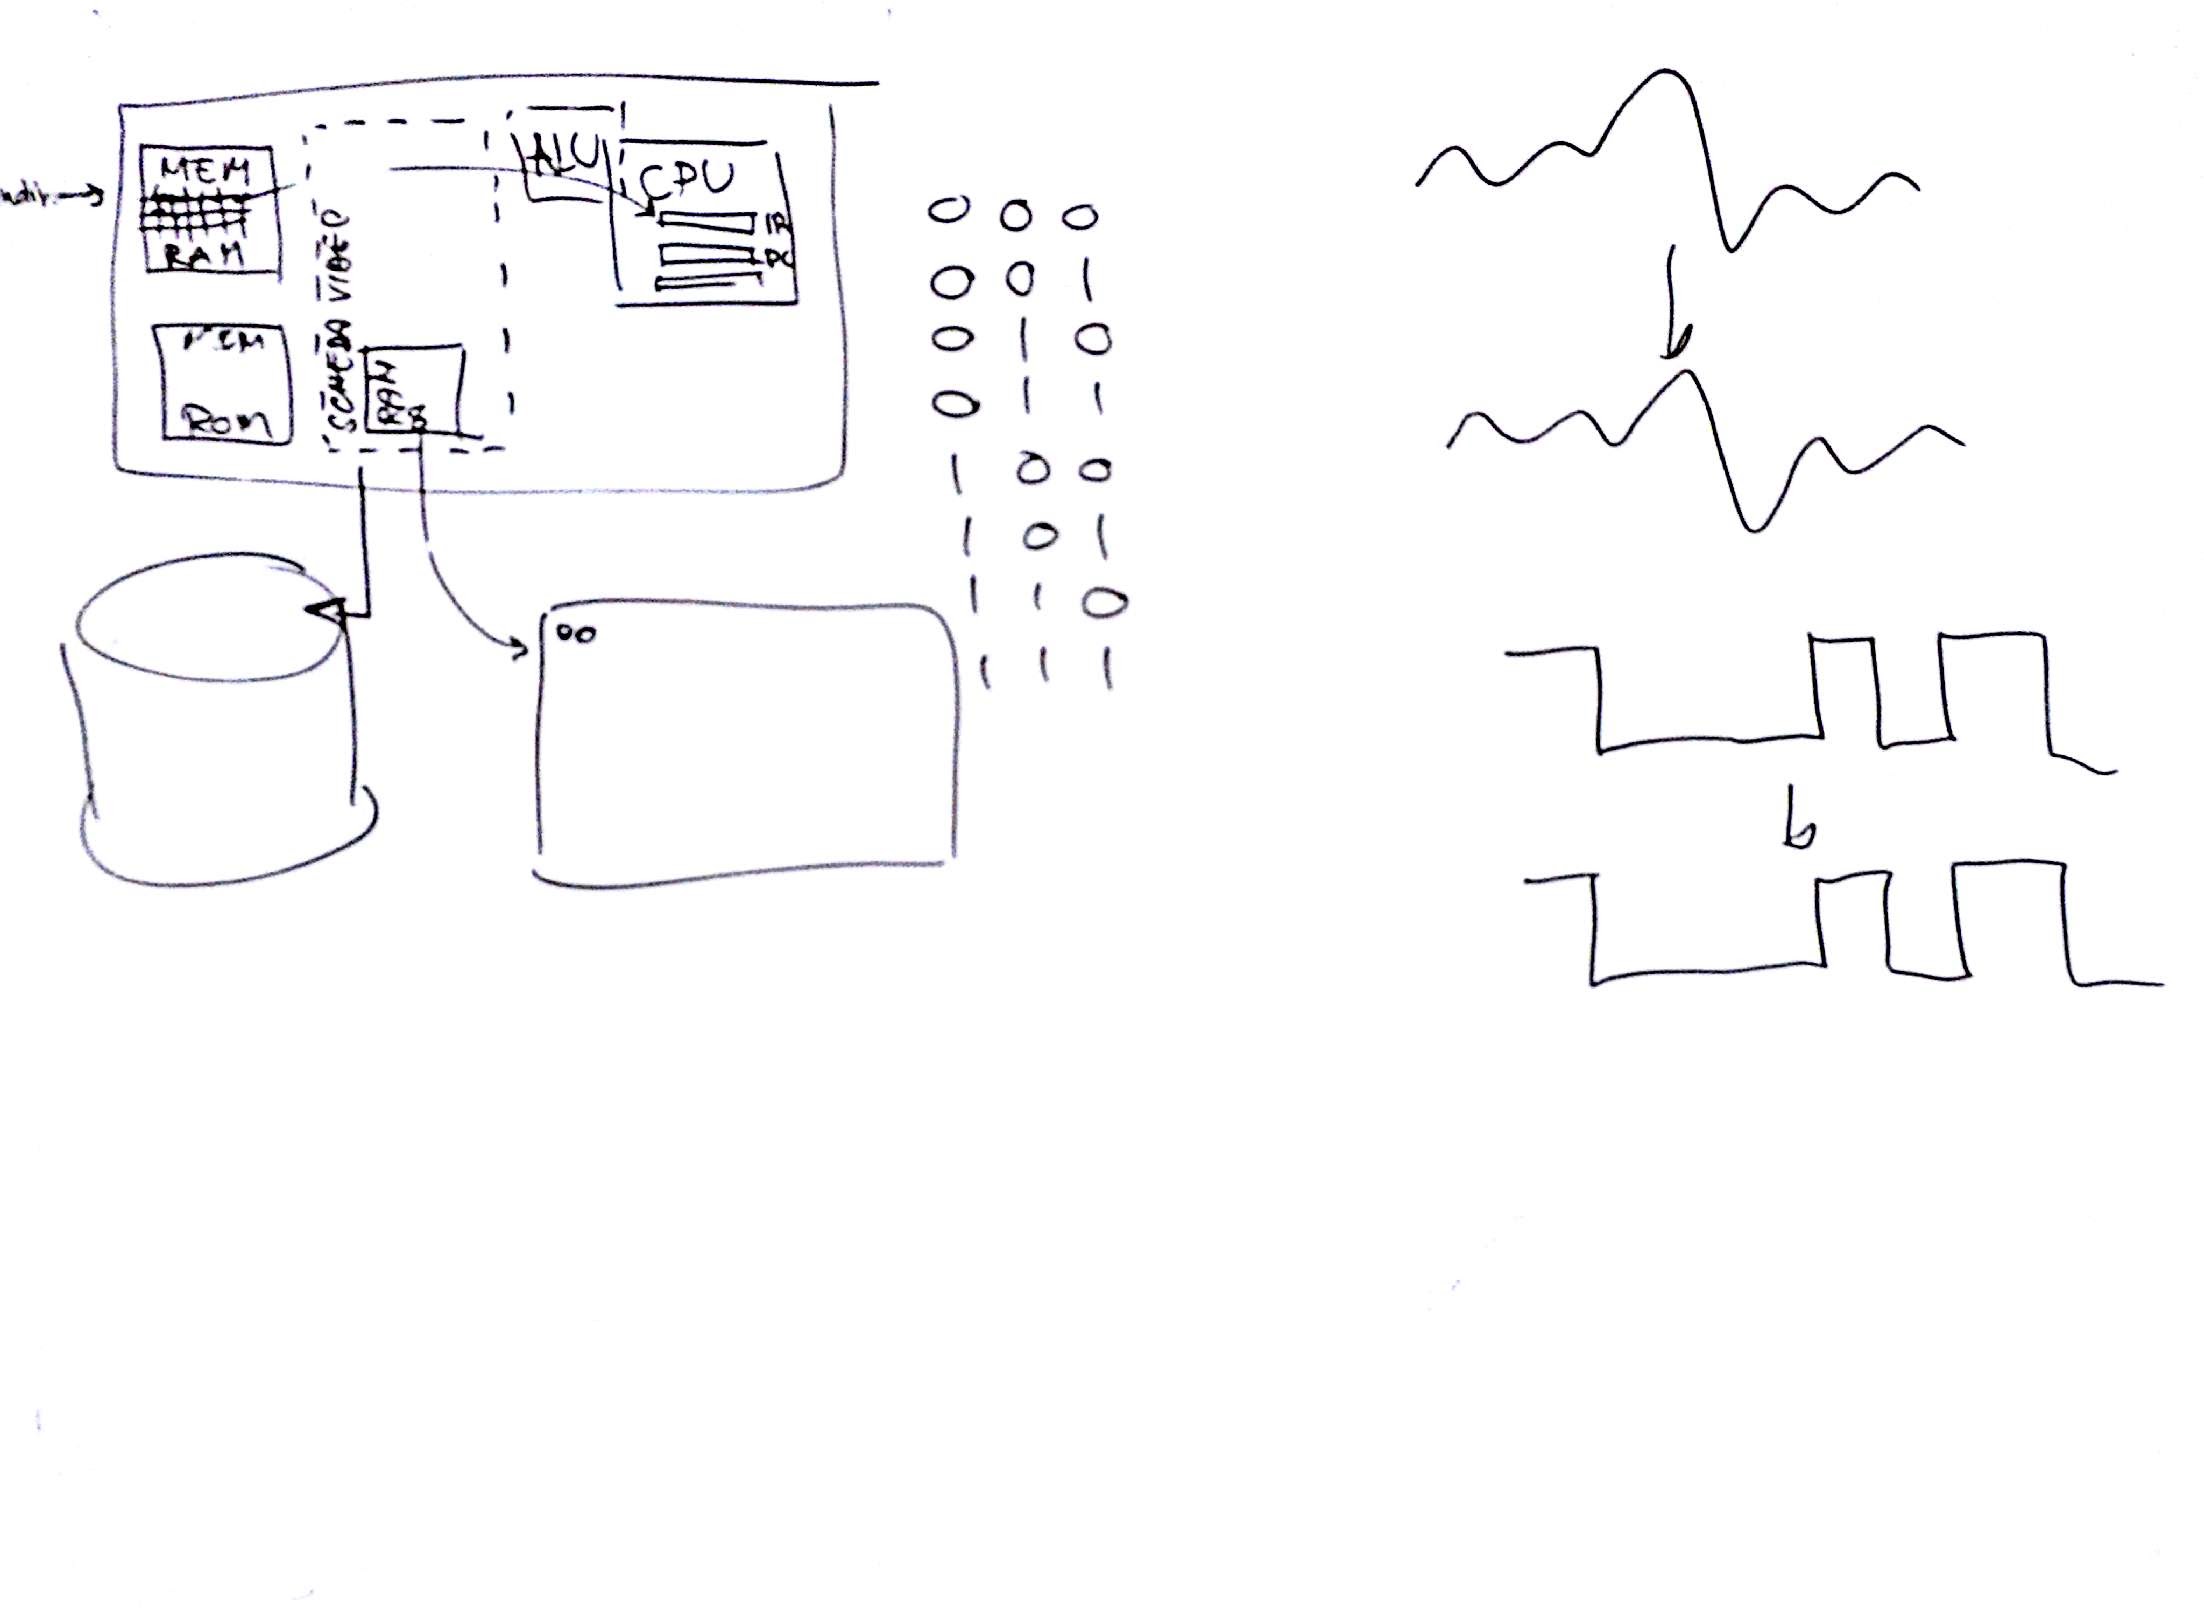 MEM
RAM
MEM
ROM
SCHEDA VIDEO
RAM
ALU
CPU
IR
PC
0 0 0
0 0 1
0 1 0
0 1 1
1 0 0
1 0 1
1 1 0
1 1 1